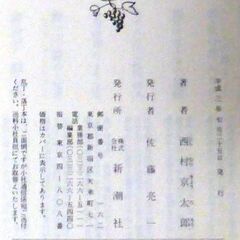 平成三年
二十五日 発行
著者 西村京太郎
発行者 佐藤亮一
発行所 株式会社 新潮社
郵便番号 一六二
東京都新宿区矢来町七一
電話 業務部
編集部
振替 東京四一八〇八番
価格はカバーに表示してあります。
乱丁・落丁本は、ご面倒ですが小社通信係宛ご送付
ください。送料小社負担にてお取替えいたします。